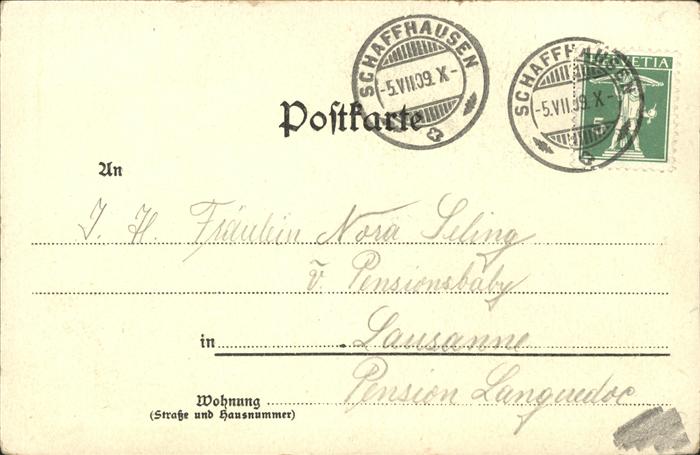 SCHAFFHAUSEN
-5.VII.09.X-
SCHAFFHAUSEN
-5.VII.09.X-
HELVETIA
5
Postkarte
An
I. H. Fräulein Nora Seling
v. Pensionsbäby
in Lausanne
Pension Languedoc
Wohnung
(Straße und Hausnummer)